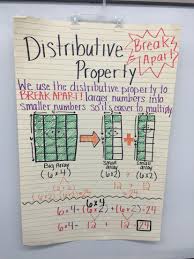 Distributive
Property
Break
Apart!
We use the distributive property to
BREAK APART! larger numbers into
smaller numbers so it's easier to multiply.
Big
Array
(6x4)
Small
Array
(6x2)
Small
Array
(6x2)
12 + 12 = 24
6x4
6x4=(6x2)+(6x2)=24
6x4= 12 + 12 = 24